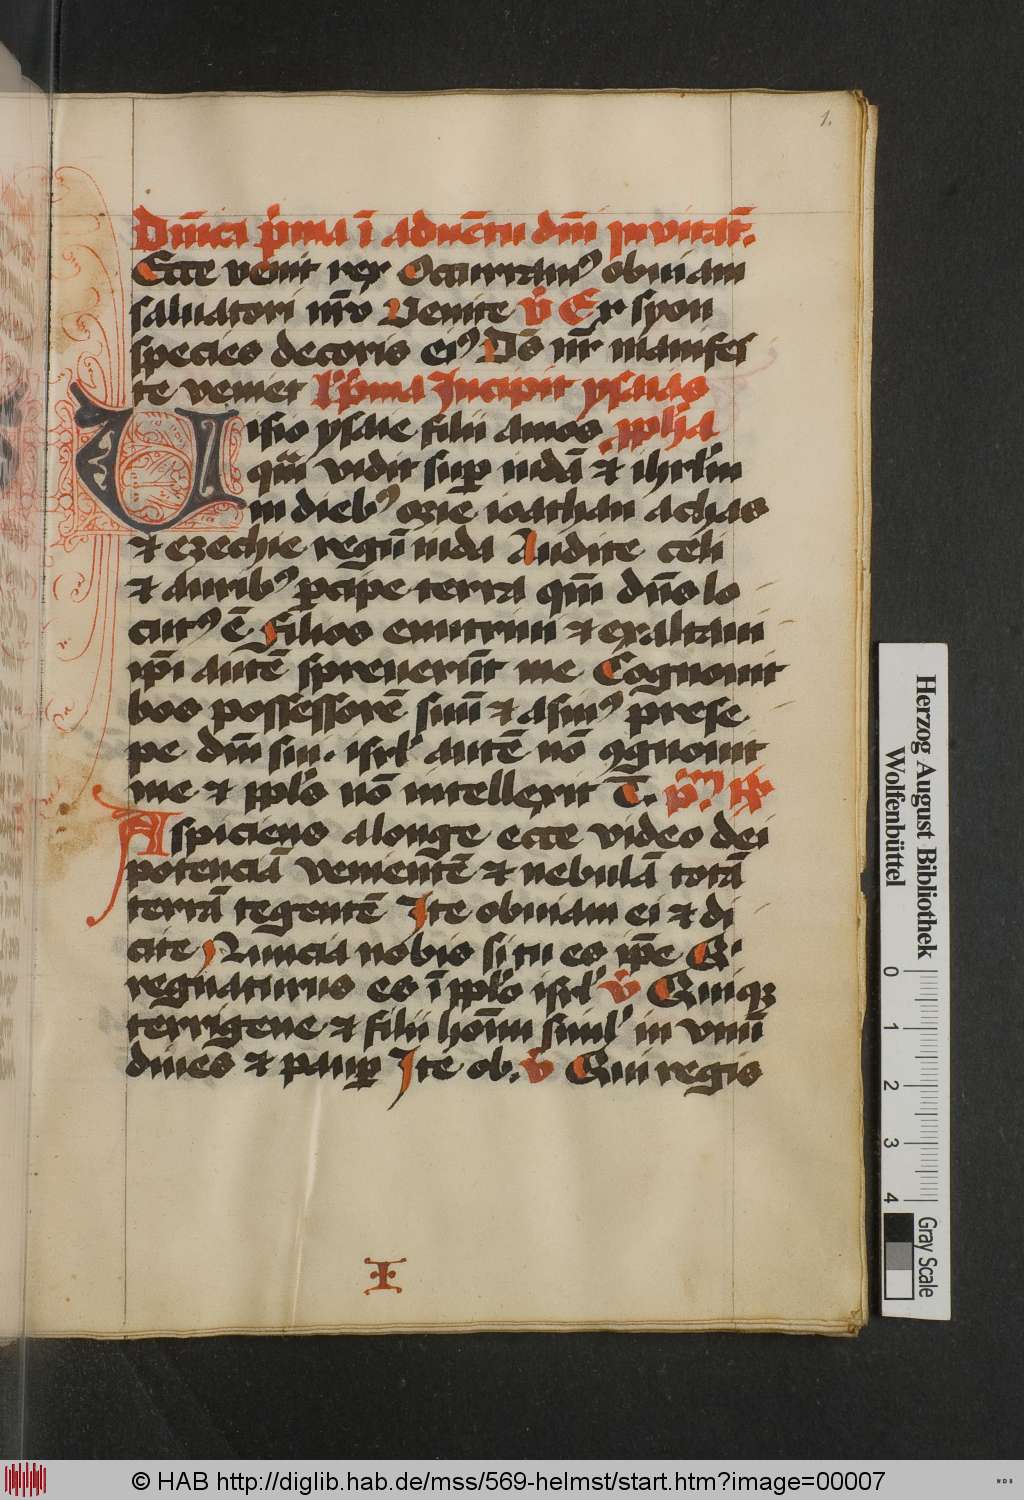 1.
Dn̄ica p̄ma ī aduētu dn̄i inuitat̄.
Ecce venit rex Occurram⁹ obuiam
saluatori nr̄o Venite v̊ Ex syon
species decoris ei⁹ Ds̄ nr̄ manifes
te veniet l̕ p̄ma Incipit ysaias
Visio ysaie filii amos ꝓph̄a
qm̄ vidit suꝑ iudā ⁊ ihrl̕m
in dieb⁹ ozie ioathan achas
⁊ ezechie regū iuda Audite celi
⁊ aurib⁹ ꝑcipe terra qm̄ dn̄s lo
cut⁹ ē Filios enutriui ⁊ exaltaui
ip̄i autē spreuerūt me Cognouit
bos possessorē suū ⁊ asin⁹ prese
pe dn̄i sui. isrl̕ autē nō ꝯgnouit
me ⁊ ppl̕s nō intellexit T. p̄m. R̄
Aspiciens a longe ecce video dei
potenciā venientē ⁊ nebulā totā
terrā tegentē Ite obuiam ei ⁊ di
cite Nuncia nobis si tu es ip̄e Q̕
regnaturus es ī ppl̕o isrl̕ v̊ Quiqꝫ
terrigene ⁊ filii homı̄n simul̕ in vnū
diues ⁊ pauꝑ Ite ob. v̊ Qui regis
I
Herzog August Bibliothek
Wolfenbüttel
0 1 2 3 4
Gray Scale
© HAB http://diglib.hab.de/mss/569-helmst/start.htm?image=00007